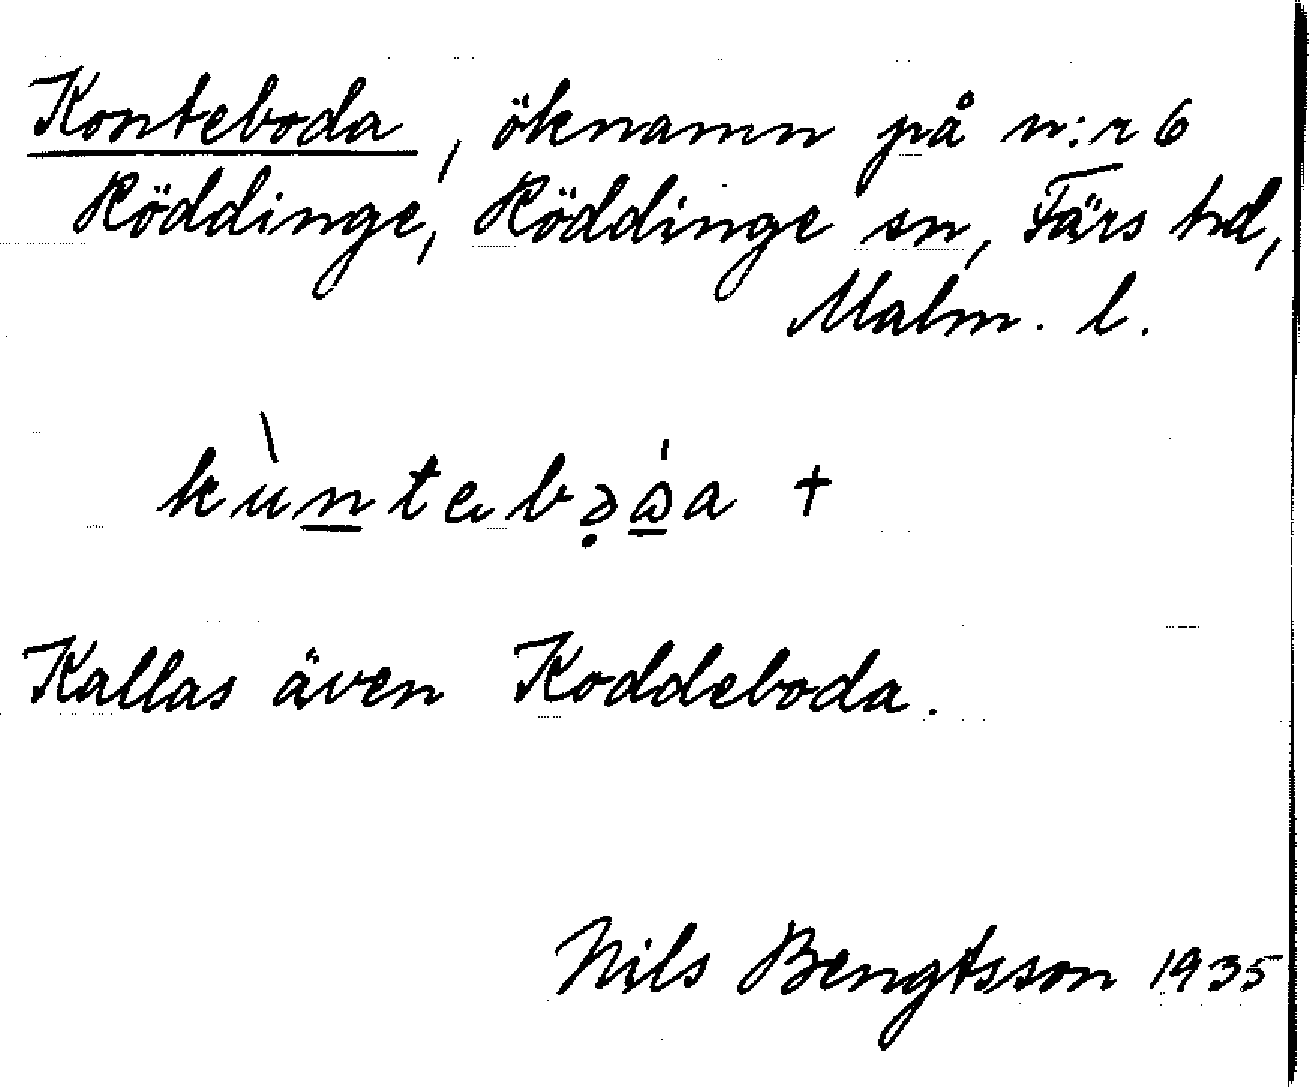 Konteboda, öknamn på n:r 6
Röddinge, Röddinge sn, Färs hd,
Malm. l.
Kallas även Koddeboda.
Nils Bengtsson 1935